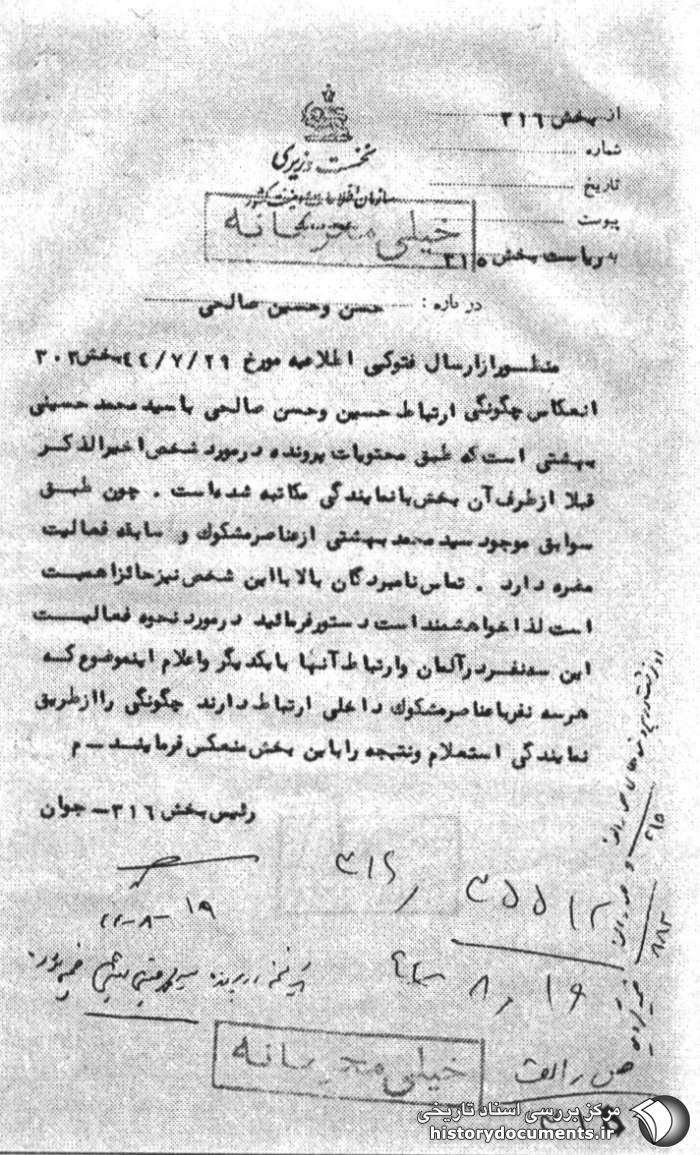 از بخش ۳۱۶
شماره
تاریخ
پیوست
به ریاست بخش ۳۱۵
نخست وزیری
سازمان اطلاعات و امنیت کشور
خیلی محرمانه
در باره : حسن وحسین صالحی
منظور از ارسال فتوکپی اطلاعیه مورخ ۴۴/۷/۲۹ بخش ۳۰۳
انعکاس چگونگی ارتباط حسین وحسن صالحی با سید محمد حسینی
بهشتی است که طبق محتویات پرونده در مورد شخص اخیرالذکر
قبلا از طرف آن بخش با نمایندگی مکاتبه شده است . چون طبق
سوابق موجود سید محمد بهشتی از عناصر مشکوک و سابقه فعالیت
مضره دارد . تماس نامبردگان بالا با این شخص نیز حائز اهمیت
است لذا خواهشمند است دستور فرمائید در مورد نحوه فعالیت
این سه نفر در آلمان و ارتباط آنها با یکدیگر و اعلام اینموضوع که
هر سه نفر با عناصر مشکوک داخلی ارتباط دارند چگونگی را از طریق
نمایندگی استعلام ونتیجه را باین بخش منعکس فرمایند ـ م
رئیس بخش ۳۱۶ ـ جوان
۴۴-۸-۱۹
۳۱۶/ ۳۵۵۱۲
۴۴/ ۸/ ۱۶
خیلی محرمانه
ص ر الف
۳۱۵
۸۸۲
مرکز بررسی اسناد تاریخی
historydocuments.ir